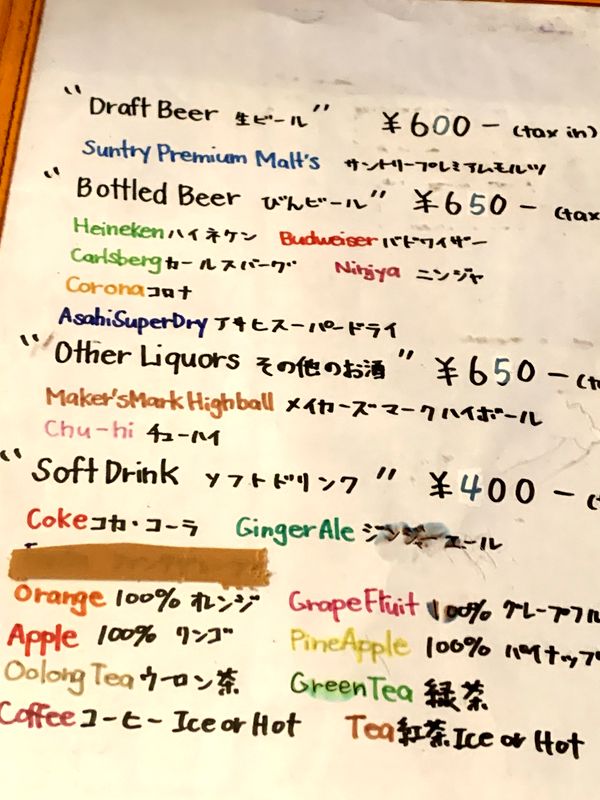 "Draft Beer 生ビール" ¥600- (tax in)
Suntry Premium Malt's サントリープレミアムモルツ
"Bottled Beer びんビール" ¥650- (tax
Heineken ハイネケン Budweiser バドワイザー
Carlsberg カールスバーグ Ninjya ニンジャ
Corona コロナ
Asahi Super Dry アサヒスーパードライ
"Other Liquors その他のお酒" ¥650-
Maker's Mark Highball メイカーズマークハイボール
Chu-hi チューハイ
"Soft Drink ソフトドリンク" ¥400-
Coke コカ・コーラ Ginger Ale ジンジャーエール
Orange 100% オレンジ GrapeFruit 100% グレープフル
Apple 100% リンゴ PineApple 100% パイナップ
Oolong Tea ウーロン茶 Green Tea 緑茶
Coffee コーヒー Ice or Hot Tea 紅茶 Ice or Hot